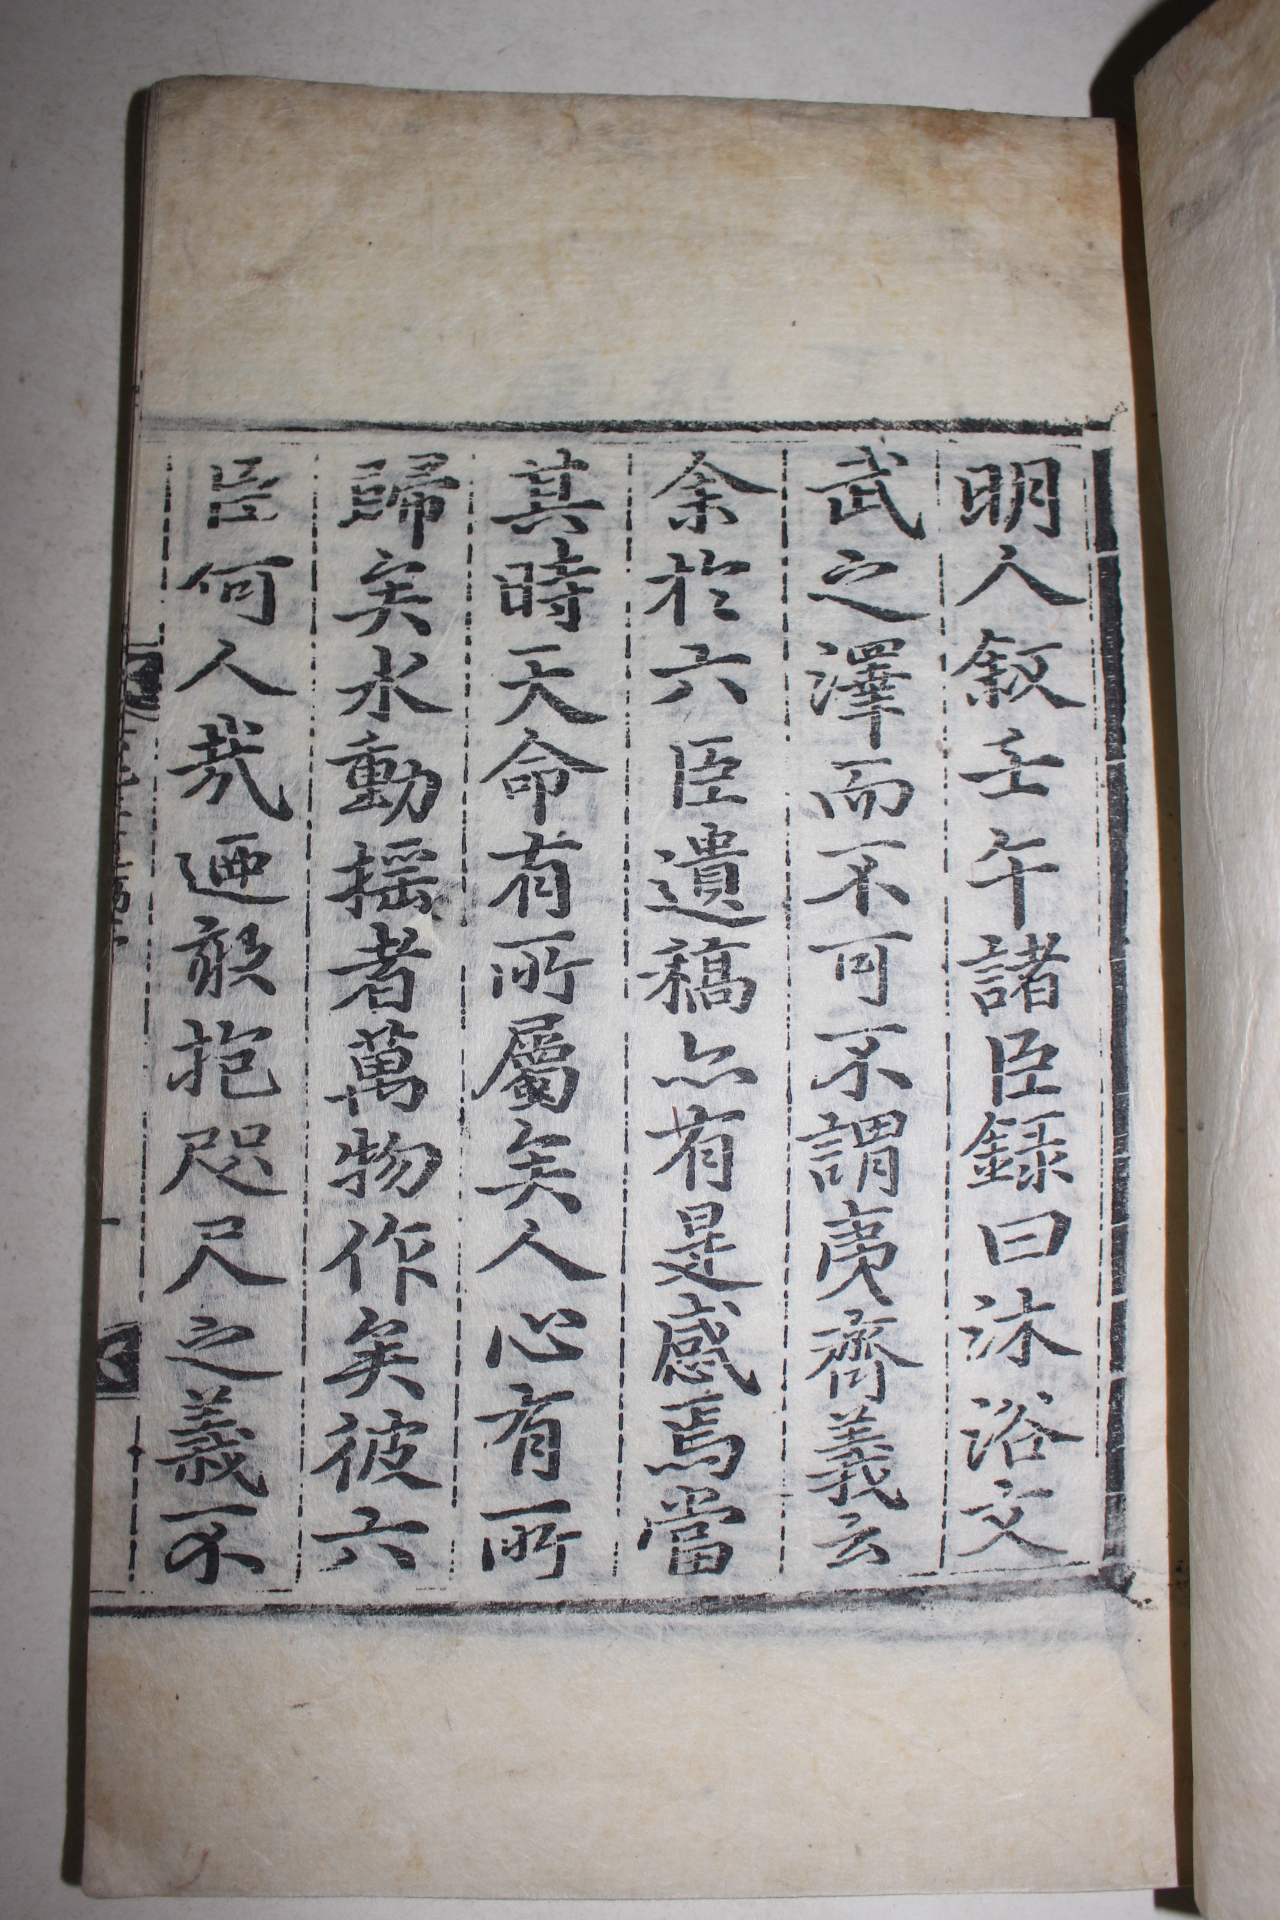 明人叙壬午諸臣録曰沐浴文
武之澤而不可不謂夷齊義云
余於六臣遺稿亦有是感焉當
其時天命有所屬矣人心有所
歸矣水動揺者萬物作矣彼六
臣何人哉廼敢抱咫尺之義不